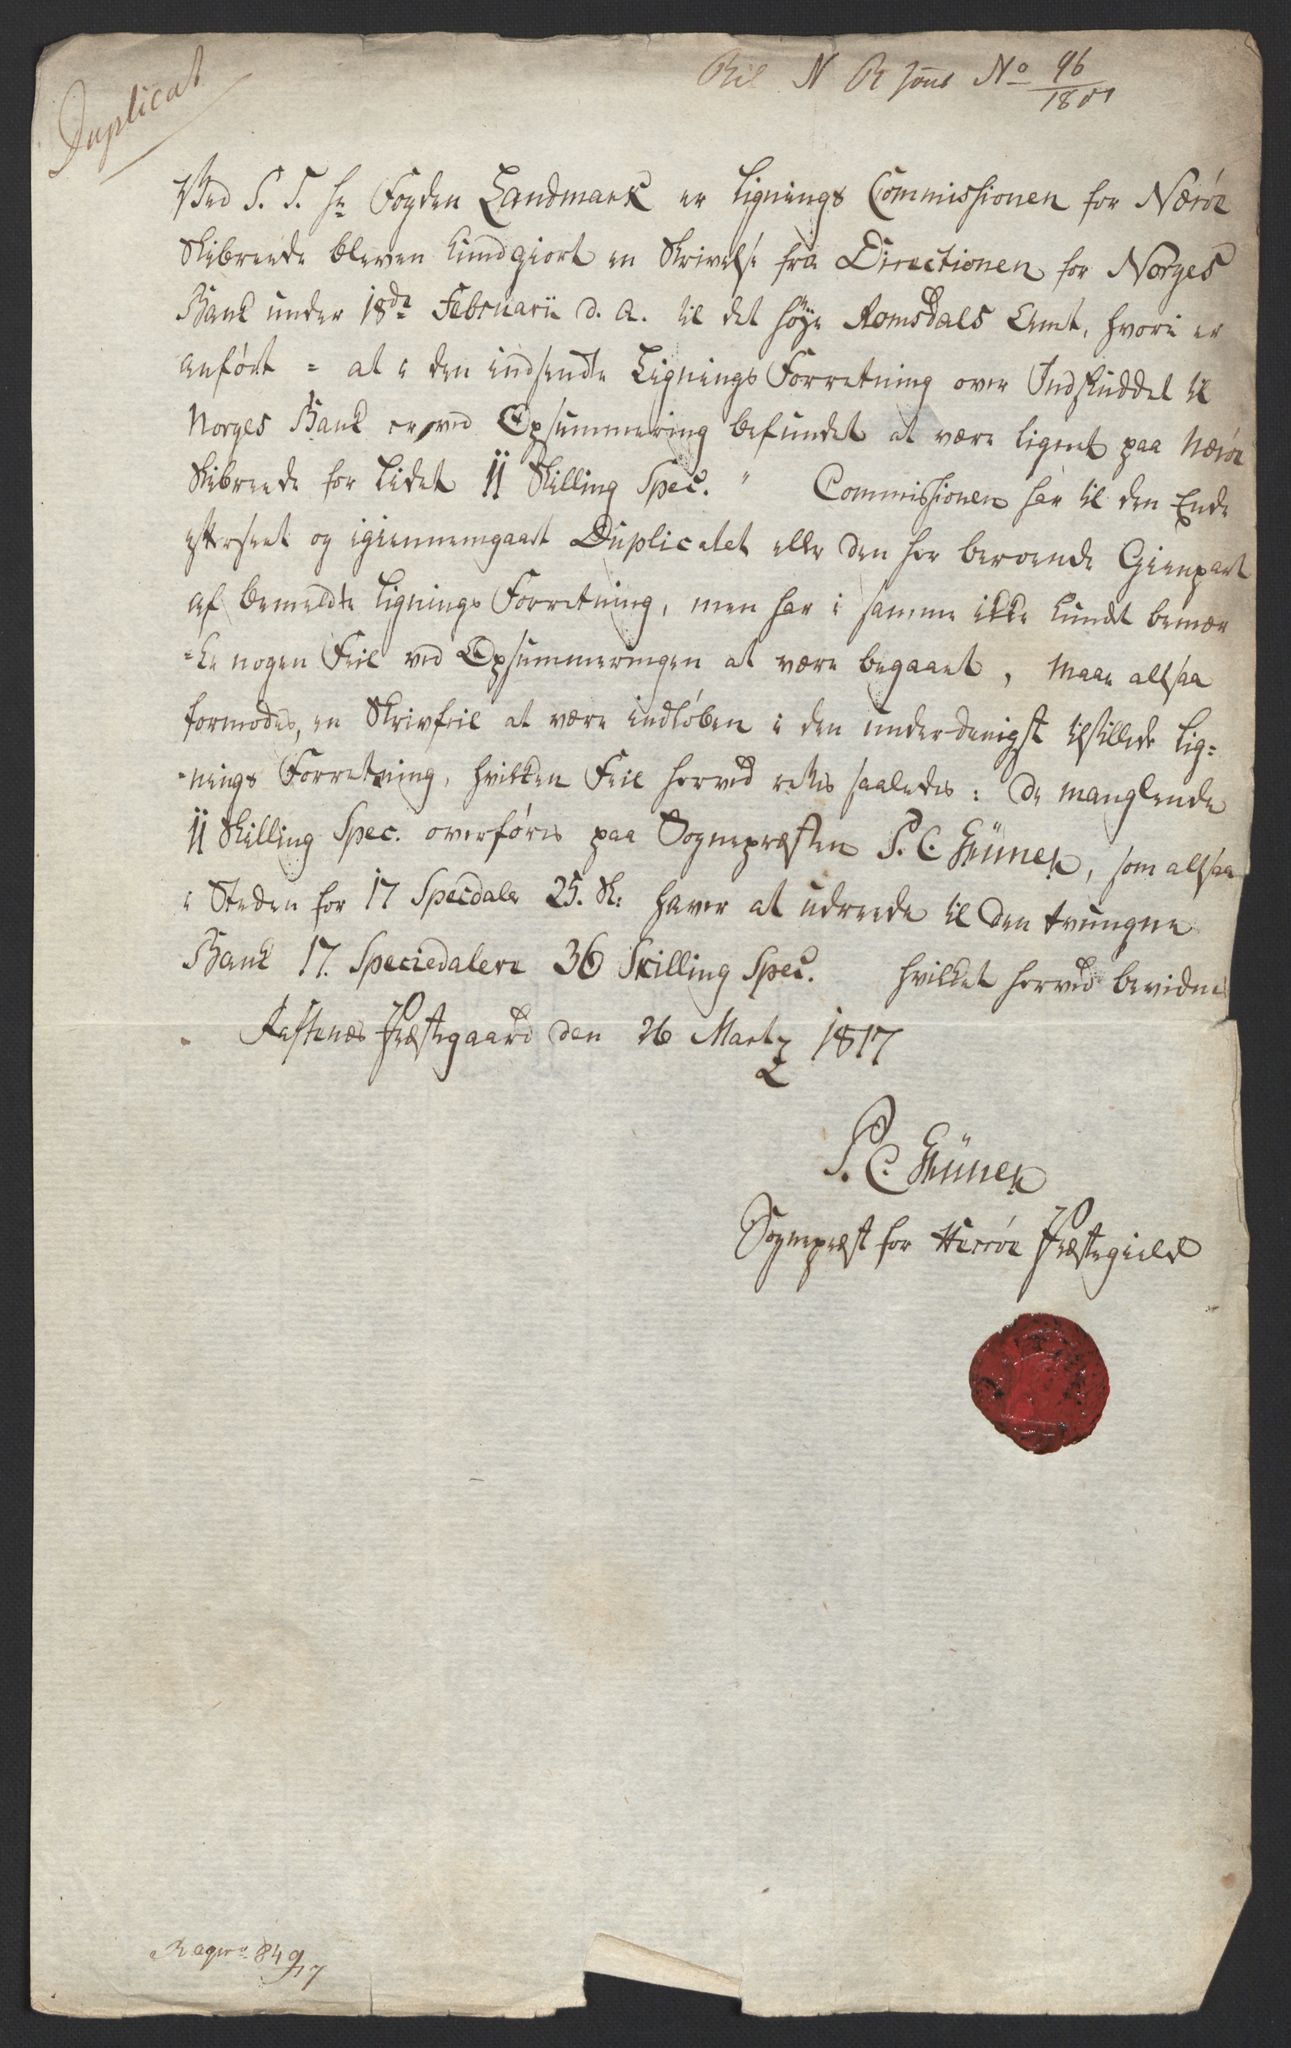 Duplicat
Bil N R Jour No 96/1801
Ved S. T. Hr Fogden Landmark er Lignings Commissionen for Nærøe
Skibreede bleven kundgiort en Skrivelse fra Directionen for Norges
Bank under 18de Februarii d. A. til det høye Romsdals Amt, hvori er
anført = at i den indsendte Lignings Forretning over Indskuddet til
Norges Bank er, ved Opsummering befundet at være lignet paa Nærøe
Skibreede for lidet 11 Skilling Spec. " Commissionen har til den Ende
efterseet og igiennemgaaet Duplicatet eller den her beroende Gienpart
af bemeldte Lignings Forretning, men har i samme ikke kundet bemær
=ke nogen Feil ved Opsummeringen at være begaaet, maae altsaa
formodes, en Skrivfeil at være indløben i den underdanigst tilstillede Lig=
=nings Forretning, hvilken Feil herved rettes saaledes: De manglende
11 Skilling Spec. overføres paa Sognepræsten P. C. Grüner, som altsaa
i Steden for 17 Specdaler 25. Sk: haver at udreede til den tvungne
Bank 17. Speciedalere 36 Skilling Spec. hvilket herved bevidnes
Præstegaard den 26 Martz 1817
P. C. Grüner
Sognepræst for Herrøe Præstegield
849/17